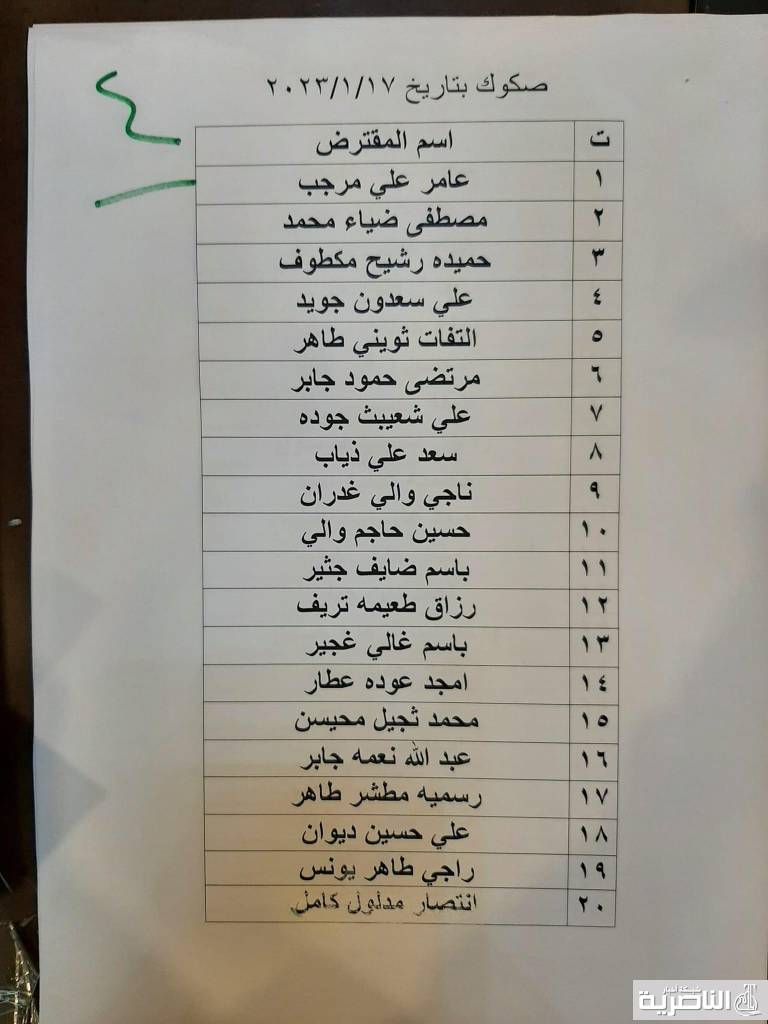 صكوك بتاريخ ٢٠٢٣/١/١٧
ت اسم المقترض
١ عامر علي مرجب
٢ مصطفى ضياء محمد
٣ حميده رشيح مكطوف
٤ علي سعدون جويد
٥ التفات ثويني طاهر
٦ مرتضى حمود جابر
٧ علي شعيبث جوده
٨ سعد علي ذياب
٩ ناجي والي غدران
١٠ حسين حاجم والي
١١ باسم ضايف جثير
١٢ رزاق طعيمه تريف
١٣ باسم غالي غجير
١٤ امجد عوده عطار
١٥ محمد ثجيل محيسن
١٦ عبد الله نعمه جابر
١٧ رسميه مطشر طاهر
١٨ علي حسين ديوان
١٩ راجي طاهر يونس
٢٠ انتصار مدلول كامل
شبكة أخبار
الناصرية